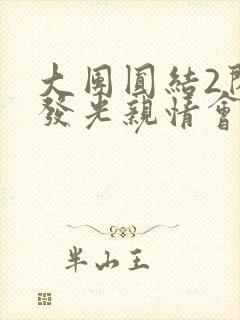 大團圓結2
發光親情會
半山王